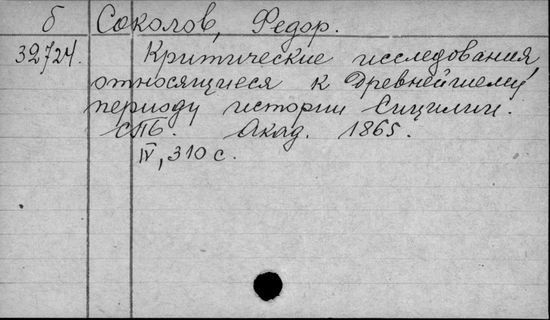 б Соколов, Федор.
32724. Критические исследования,
относящиеся к древнейшему
периоду истории Сицилии.
СПБ. Акад. 1865.
IV, 310 с.